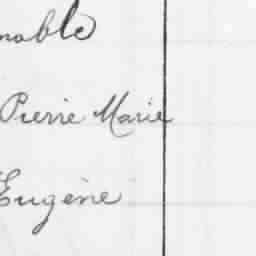 mable
Pierre Marie
Eugène